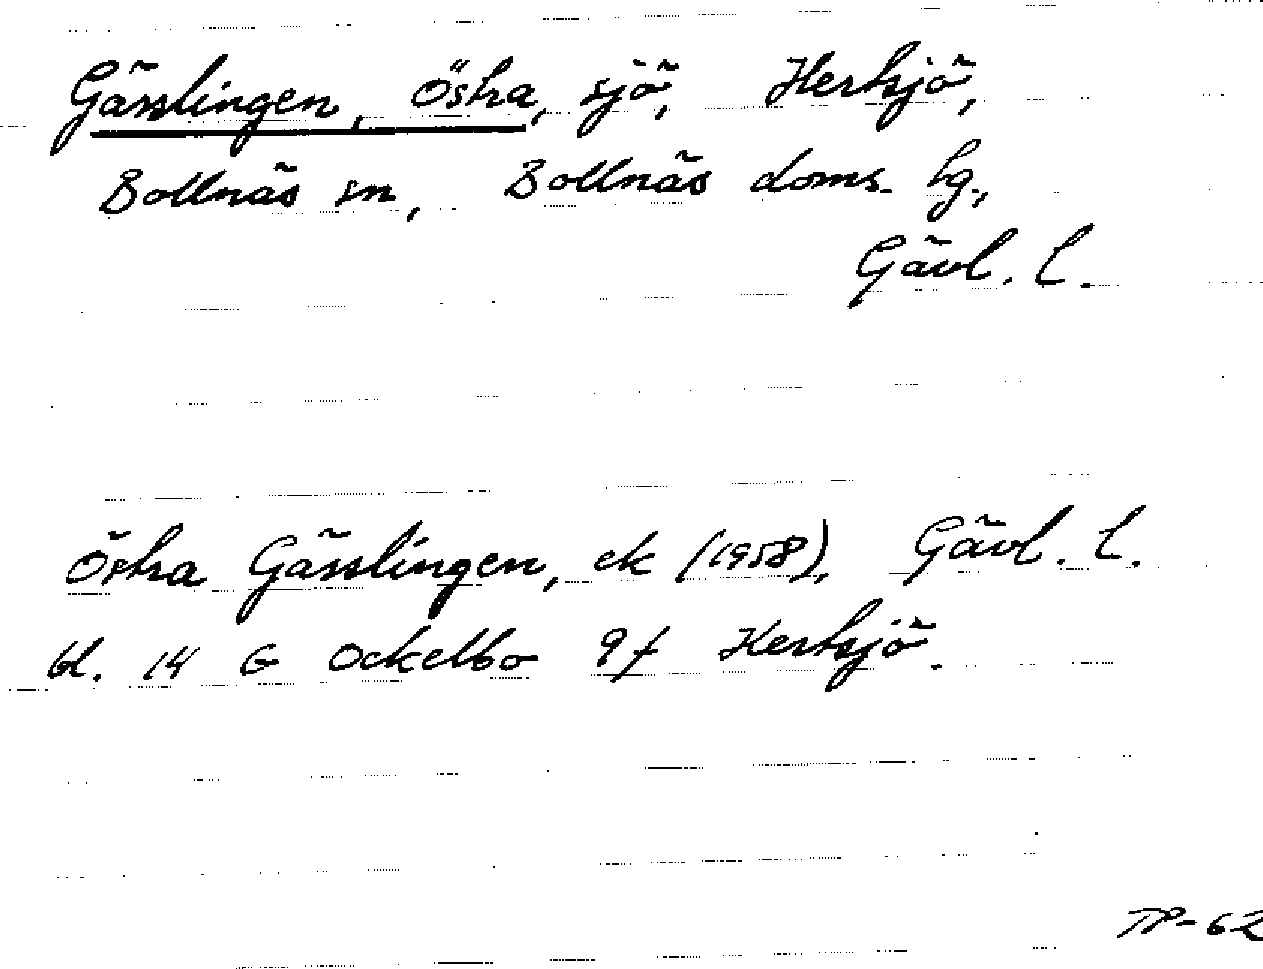 Gässlingen, Östra, sjö, Hertsjö,
Bollnäs sn, Bollnäs doms. hg.,
Gävl. l.
Östra Gässlingen, ek (1958), Gävl. l.
bl. 14 G Ockelbo 9f Hertsjö.
TP-62